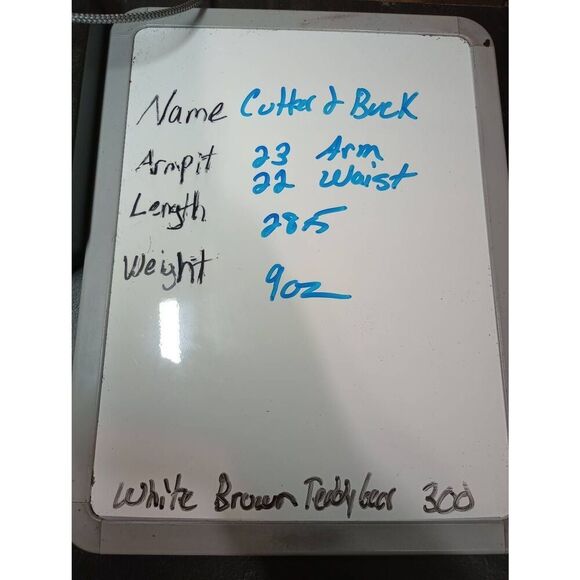 Name Cutter & Buck
Armpit 23 Arm
22 Waist
Length 28.5
Weight 9oz
White Brown Teddybear 300